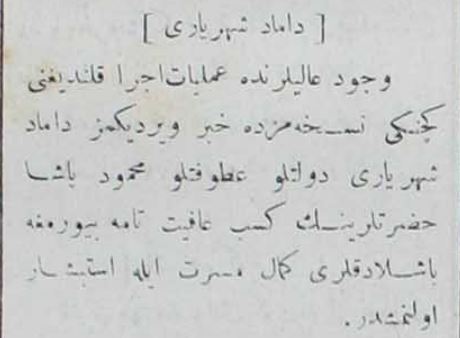 [ داماد شهریاری ]
وجود عالیلرنده عملیات اجرا قلندیغنی
کچنکی نسخه‌مزده خبر ویردیکمز داماد
شهریاری دولتلو عطوفتلو محمود پاشا
حضرتلرینك كسب عافیت تامه بیورمغه
باشلادقلری کمال مسرت ایله استبشار
اولنمشدر.